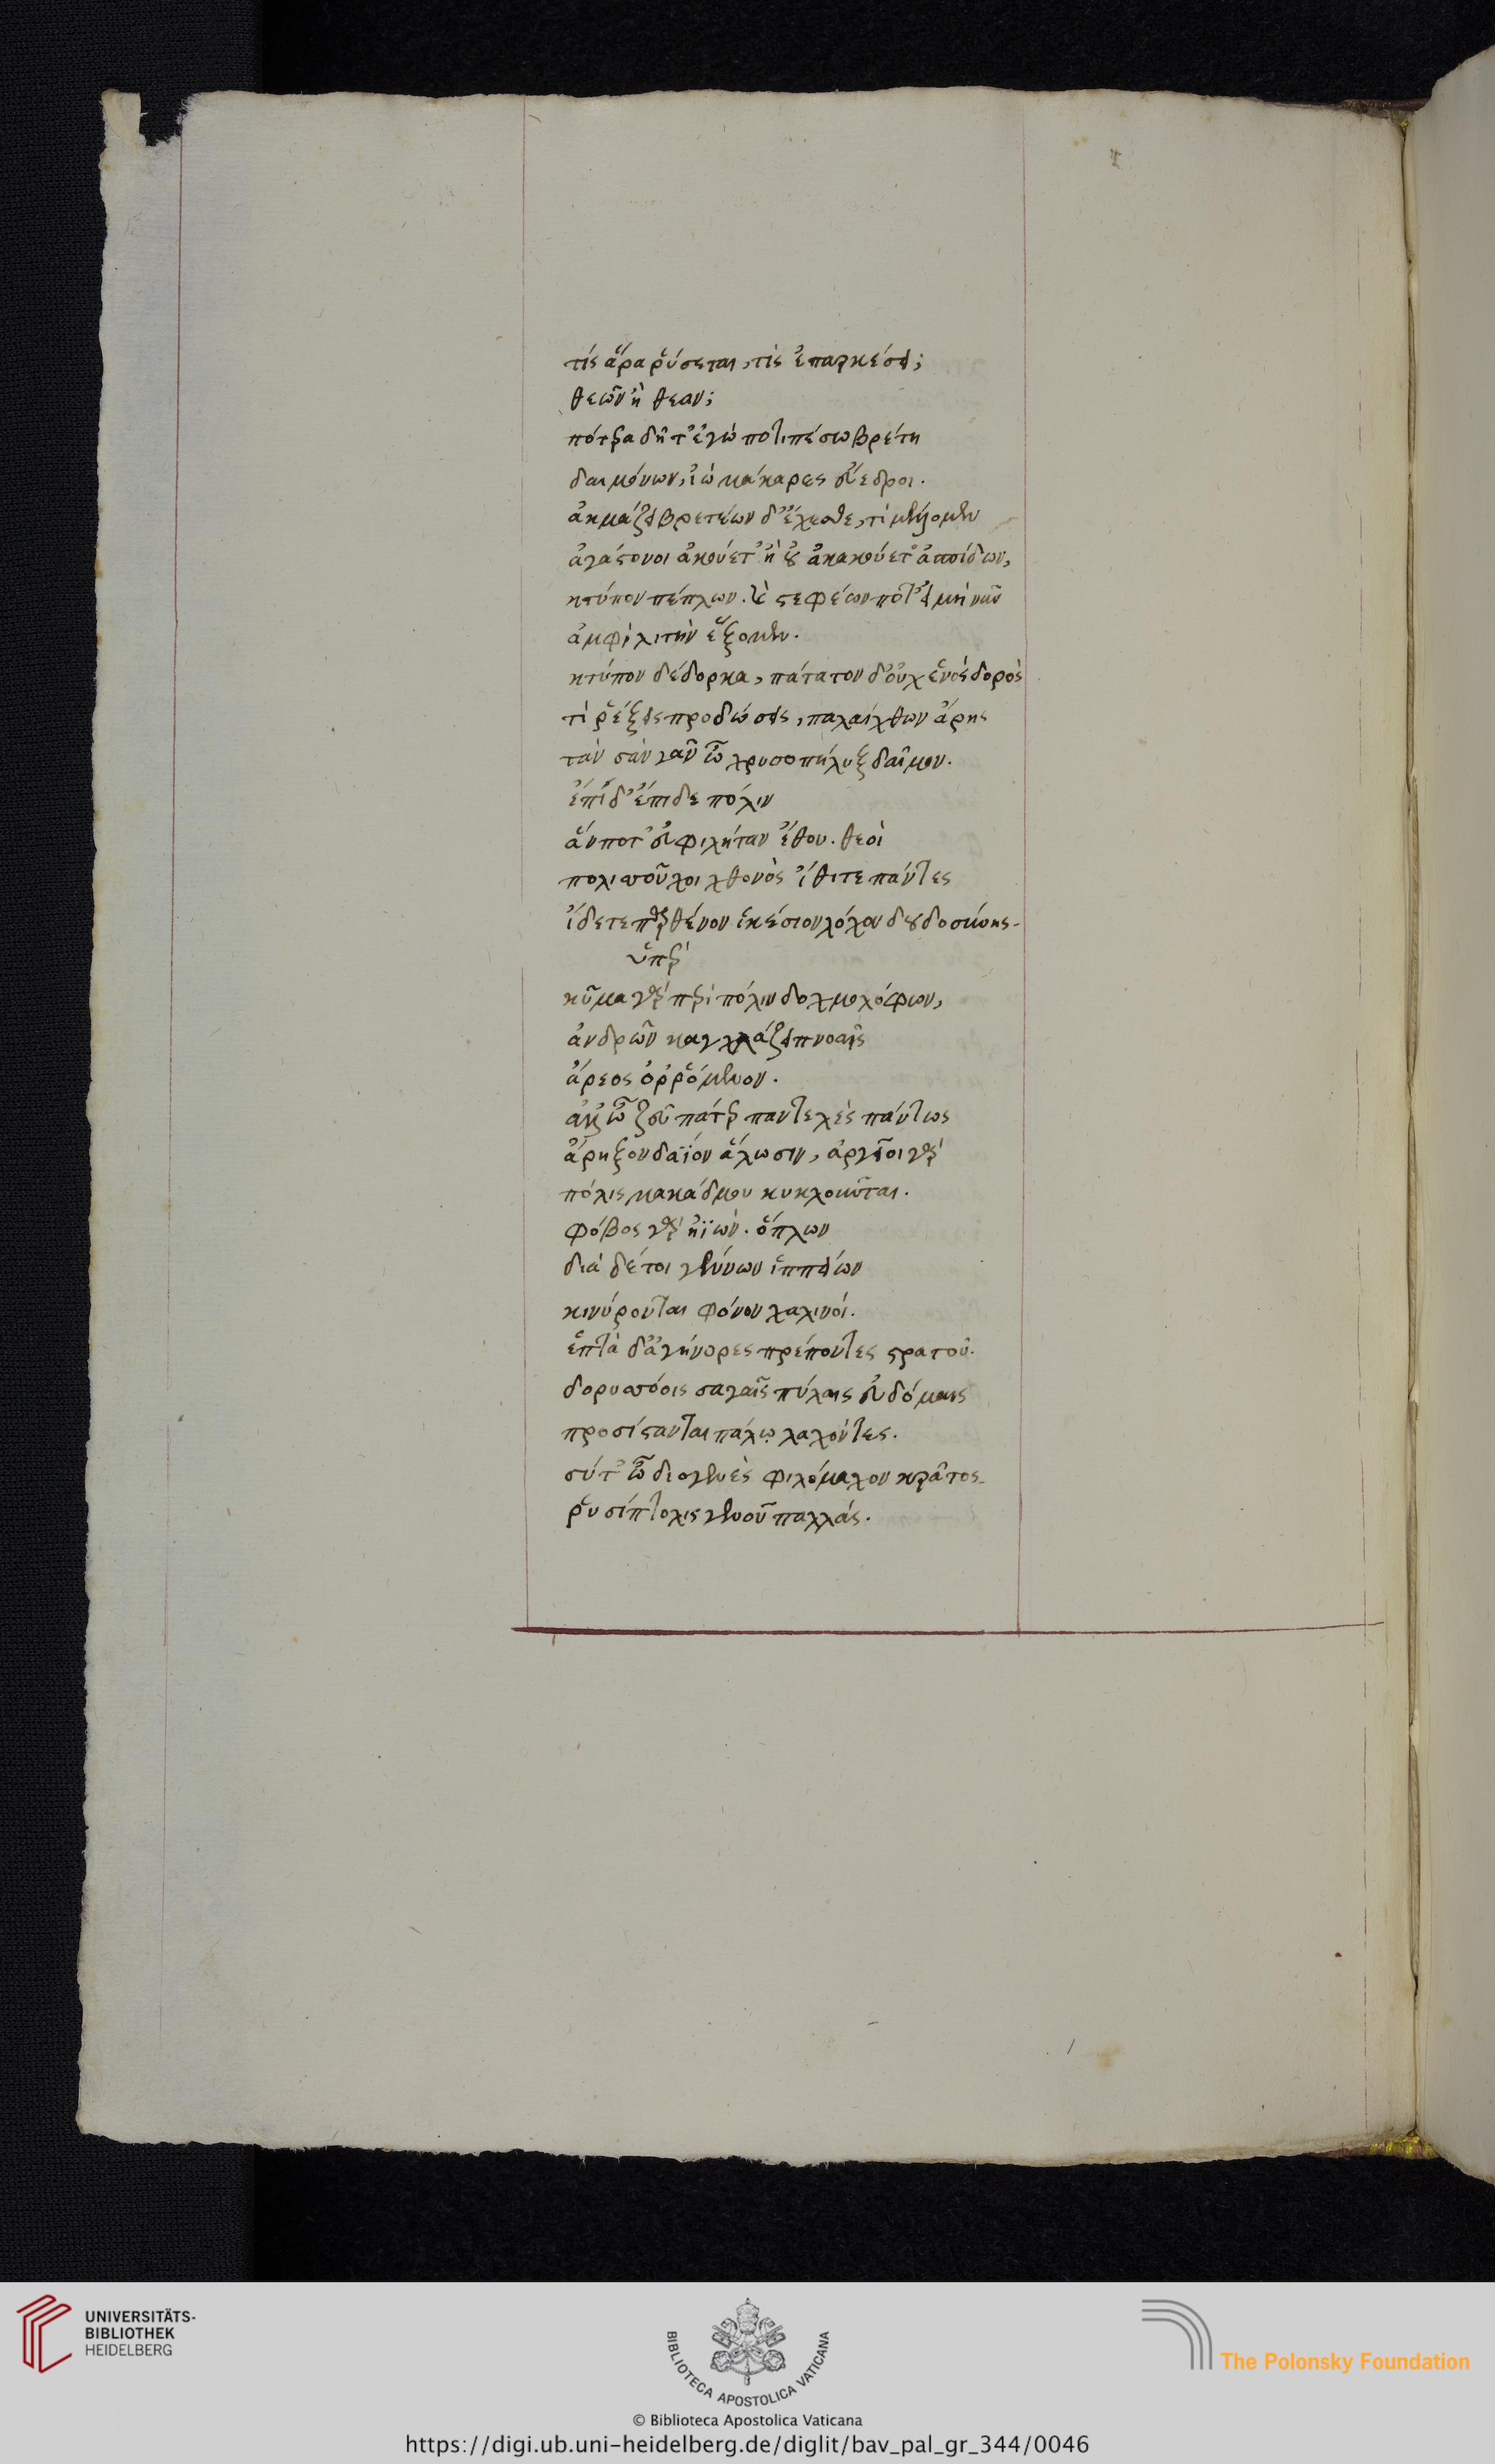 τίς ἄρα ῥύσεται, τίς ἐπαρκέσει;
θεῶν ἢ θεαν;
πότερα δῆτ' ἐγὼ ποτιπέσω βρέτη
δαιμόνων, ἰὼ μάκαρες εὔεδροι.
ἀκμάζει βρετέων δ' ἔχεσθαι, τί μέλλομεν
ἀγάστονοι ἀκούετ' ἢ οὐκ ἀκούετ' ἀσπίδων,
κτύπον πέπλων. καὶ στεφέων πότ' εἰ μὴ νῦν
ἀμφὶ λιτὴν ἕξομεν.
κτύπον δέδορκα, πάταγον δ' οὐχ ἑνὸς δορὸς
τί ῥέξεις προδώσεις, παλαίχθων ἄρης
τὰν σὰν γᾶν ὦ χρυσοπήληξ δαῖμον.
ἔπιδ' ἔπιδε πόλιν
ἅν ποτ' εὐφιλήταν ἔθου. θεοὶ
πολισσοῦχοι χθονὸς ἴθιτε πάντες
ἴδετε παρθένον ἱκέσιον λόχον δουλοσύνης
ὕπερ
κῦμα γὰρ περὶ πόλιν δοχμολόφων,
ἀνδρῶν καγχλάζει πνοαῖς
ἄρεος ὀρρόμενον.
ἀλλ' ὦ ζεῦ πάτερ παντελὲς πάντως
ἄρηξον δαΐον ἅλωσιν, ἀργεῖοι γὰρ
πόλισμα κάδμου κυκλοῦνται.
φόβος γὰρ ηϊων. ὅπλων
διὰ δέ τοι γενύων ἱππείων
κινύρονται φόνον χαλινοί.
ἑπτὰ δ' ἀγήνορες πρέποντες στρατοῦ.
δορυσσόοις σαγαῖς πύλαις ἑβδόμαις
προσίστανται πάλῳ λαχόντες.
σύτ' ὦ διογενὲς φιλόμαχον κράτος
ῥυσίπτολις γενοῦ παλλάς.
UNIVERSITÄTS-
BIBLIOTHEK
HEIDELBERG
BIBLIOTECA APOSTOLICA VATICANA
The Polonsky Foundation
© Biblioteca Apostolica Vaticana
https://digi.ub.uni-heidelberg.de/diglit/bav_pal_gr_344/0046